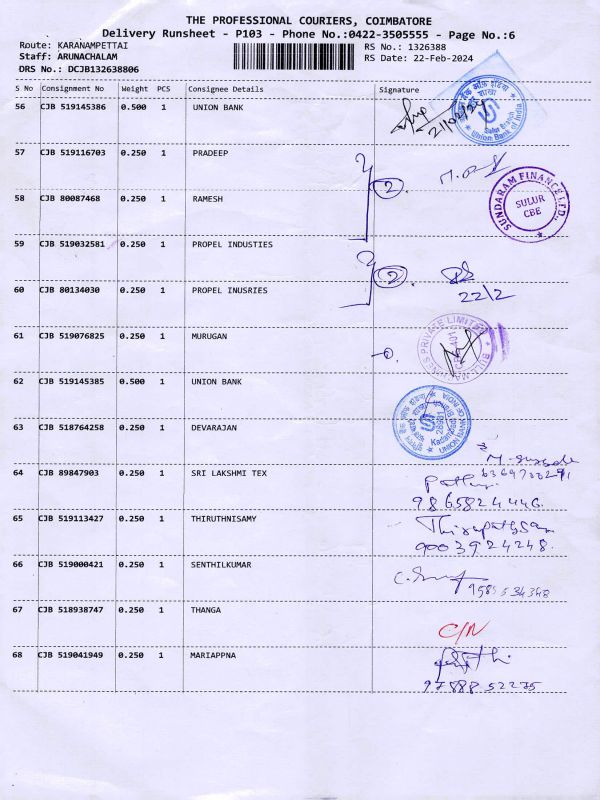 THE PROFESSIONAL COURIERS, COIMBATORE
Delivery Runsheet - P103 - Phone No.:0422-3505555 - Page No.:6
Route: KARANAMPETTAI RS No.: 1326388
Staff: ARUNACHALAM RS Date: 22-Feb-2024
DRS No.: DCJB132638806
S No Consignment No Weight PCS Consignee Details Signature
56 CJB 519145386 0.500 1 UNION BANK
21/02/24
Sulur Branch
Union Bank of India
57 CJB 519116703 0.250 1 PRADEEP
2.
58 CJB 80087468 0.250 1 RAMESH
SUNDARAM FINANCE LTD.,
SULUR
CBE
59 CJB 519032581 0.250 1 PROPEL INDUSTIES
2.
60 CJB 80134030 0.250 1 PROPEL INUSRIES
22/2
61 CJB 519076825 0.250 1 MURUGAN
PRIVATE LIMITED
62 CJB 519145385 0.500 1 UNION BANK
63 CJB 518764258 0.250 1 DEVARAJAN
UNION BANK OF INDIA
64 CJB 89847903 0.250 1 SRI LAKSHMI TEX
9865824446.
65 CJB 519113427 0.250 1 THIRUTHNISAMY
9003924248.
66 CJB 519000421 0.250 1 SENTHILKUMAR
67 CJB 518938747 0.250 1 THANGA
C/N
68 CJB 519041949 0.250 1 MARIAPPNA
97888 52275